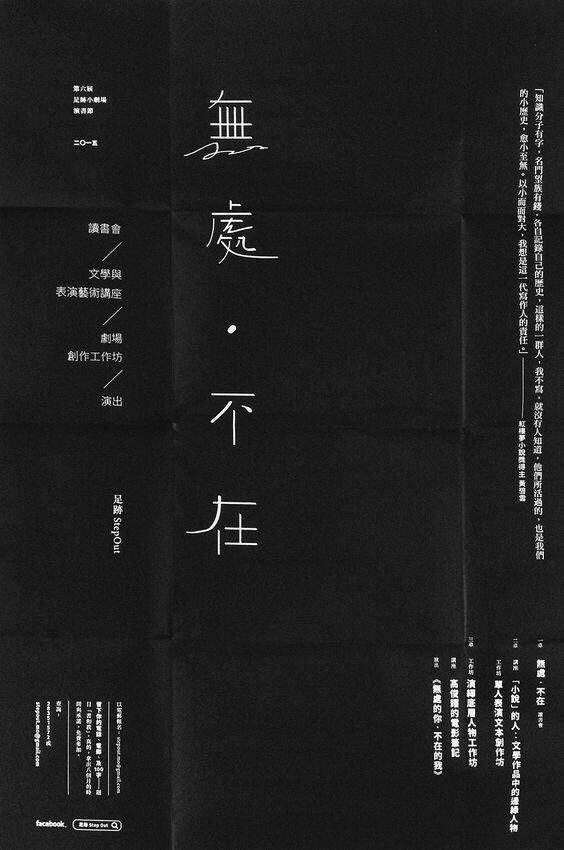 第六屆
足跡小劇場
演書節
二〇一五
無處·不在
讀書會
文學與
表演藝術講座
劇場
創作工作坊
演出
足跡 StepOut
「知識分子有字，名門望族有錢，各自記錄自己的歷史，這樣的一群人，我不寫，就沒有人知道，他們所活過的，也是我們
的小歷史，愈小至無。以小而面對大，我想是這一代寫作人的責任。」——紅樓夢小說獎得主 黃碧雲
一章 無處·不在 讀書會
二章 講座 「小說」的人：文學作品中的邊緣人物
工作坊 單人表演文本創作坊
三章 工作坊 演繹底層人物工作坊
講座 高俊耀的電影筆記
演出 《無處的你·不在的我》
以電郵報名， stepout.mo@gmail.com
留下你的電話、電郵、及100字——題
目「書和我」，真的，拿出八個月的時
間與承諾，免費參加。
查詢，
28351572 或
stepout.mo@gmail.com
facebook.
足跡 Step Out